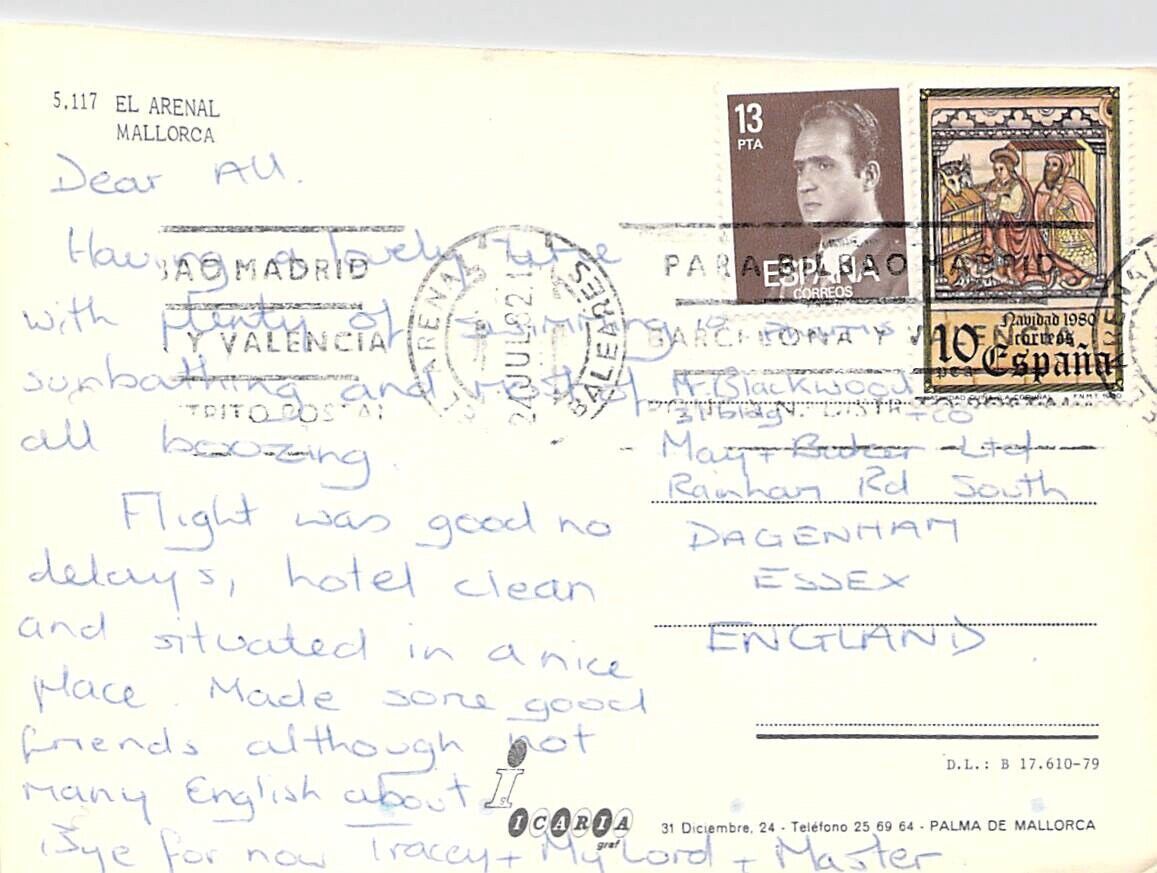 5.117 EL ARENAL
MALLORCA
Dear All.
Having a lovely time
with plenty of swimming
sunbathing and most of
all boozing.
Flight was good no
delays, hotel clean
and situated in a nice
place. Made some good
friends although not
many English about.
Bye for now Tracey + My Lord + Master
13
PTA
ESPAÑA
CORREOS
Navidad 1980
correos
10 pta España
F.N.M.T. 1980
BAO MADRID
Y VALENCIA
TRITO POSTAL
EL ARENAL
JUL 82
BALEARES
PARA BILBAO MADRID
BARCELONA Y VALENCIA
DISTR POSTAL
Mr Blackwood
May + Baker Ltd
Rainham Rd South
DAGENHAM
ESSEX
ENGLAND
D.L.: B 17.610-79
ICARIA
graf
31 Diciembre, 24 - Teléfono 25 69 64 - PALMA DE MALLORCA